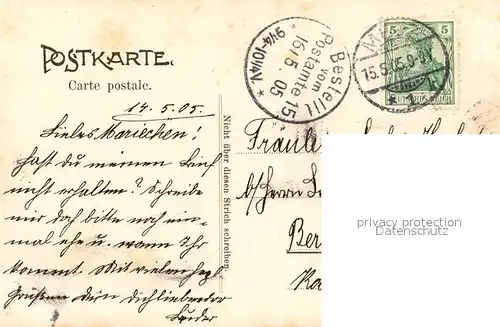 POSTKARTE.
Carte postale.
14.5.05.
Liebes Mariechen!
Hast du meinen Brief
nicht erhalten? Schreibe
mir doch bitte noch ein-
mal ehe u. wann Ihr
kommt. Mit vielen herzl.
Grüßen Dein Dichliebender
Nicht über diesen Strich schreiben.
Bestellt
vom
Postamte 15
16/5. 05
9¼-10¼V.
5 5
DEUTSCHES REICH
15.5.05. 9-
* 1
Fräulein
b/Herrn
Ber
privacy protection
Datenschutz